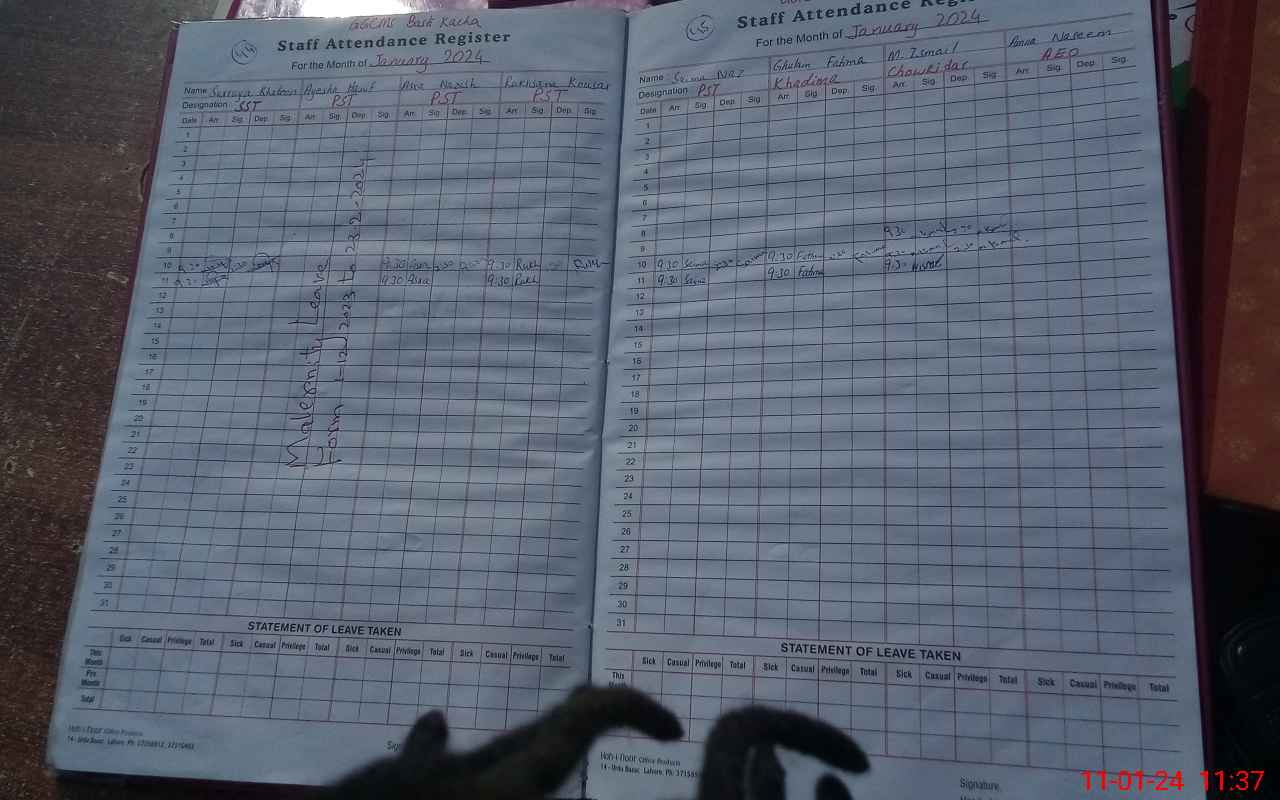 GGCMS Basti Kacha
44
Staff Attendance Register
For the Month of January 2024
Name Surraya Khatoon Ayesha Hanif Asia Nazish Rukhsana Kousar
Designation SST PST PST PST
Date Arr. Sig. Dep. Sig. Arr. Sig. Dep. Sig. Arr. Sig. Dep. Sig. Arr. Sig. Dep. Sig.
1
2
3
4
5
6
7
8
9
10 9:30 9:30 Rukh
11 9:30 Asia 9:30 Rukh
12
13
14
15
16
17
18
19
20
21
22
23
24
25
26
27
28
29
30
31
Maternity Leave
Form 1-12-2023 to 23-2-2024
STATEMENT OF LEAVE TAKEN
Sick Casual Privilege Total Sick Casual Privilege Total Sick Casual Privilege Total Sick Casual Privilege Total
This Month
Pre. Month
Total
Hoh-i-Noor Office Products
14 - Urdu Bazar, Lahore. Ph:
45
Staff Attendance
For the Month of January 2024
Name: Ghulam Fatima M. Ismail Anna Naseem
Designation PST Khadima Chowkidar AEO
Date Arr. Sig. Dep. Sig. Arr. Sig. Dep. Sig. Arr. Sig. Dep. Sig. Arr. Sig. Dep. Sig.
1
2
3
4
5
6
7
8 9:30
9
10 9:30 9:30
11 9:30 9:30 Fatima 9:30
12
13
14
15
16
17
18
19
20
21
22
23
24
25
26
27
28
29
30
31
STATEMENT OF LEAVE TAKEN
Sick Casual Privilege Total Sick Casual Privilege Total Sick Casual Privilege Total Sick Casual Privilege Total
This
Hoh-i-Noor Office Products
14 - Urdu Bazar, Lahore. Ph:
Signature.
11-01-24 11:37